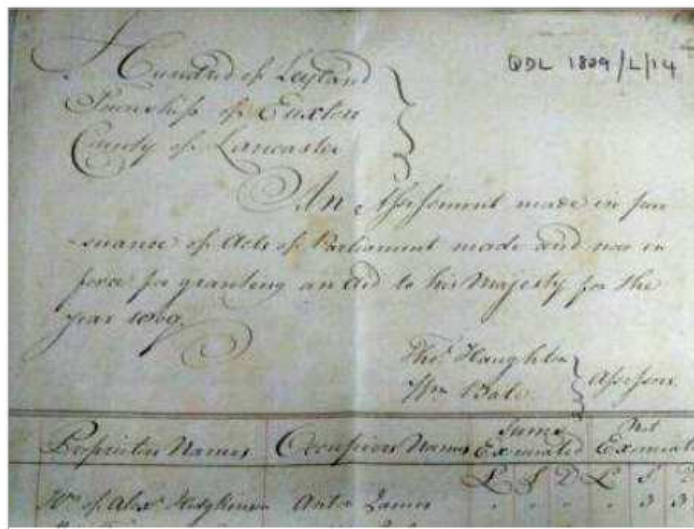 QDL 1809/L/14
Hundred of Leyland
Township of Euxton
County of Lancaster
An Assessment made in pur
-suance of Acts of Parliament made and now in
force for granting an Aid to his Majesty for the
year 1809.
Thos. Haughton
Wm
Assessors.
Proprietors Names Occupiers Names Sums Exonerated Not Exonerated
L S D L S D
Wm of Alexr Hodgkinson James 3 3